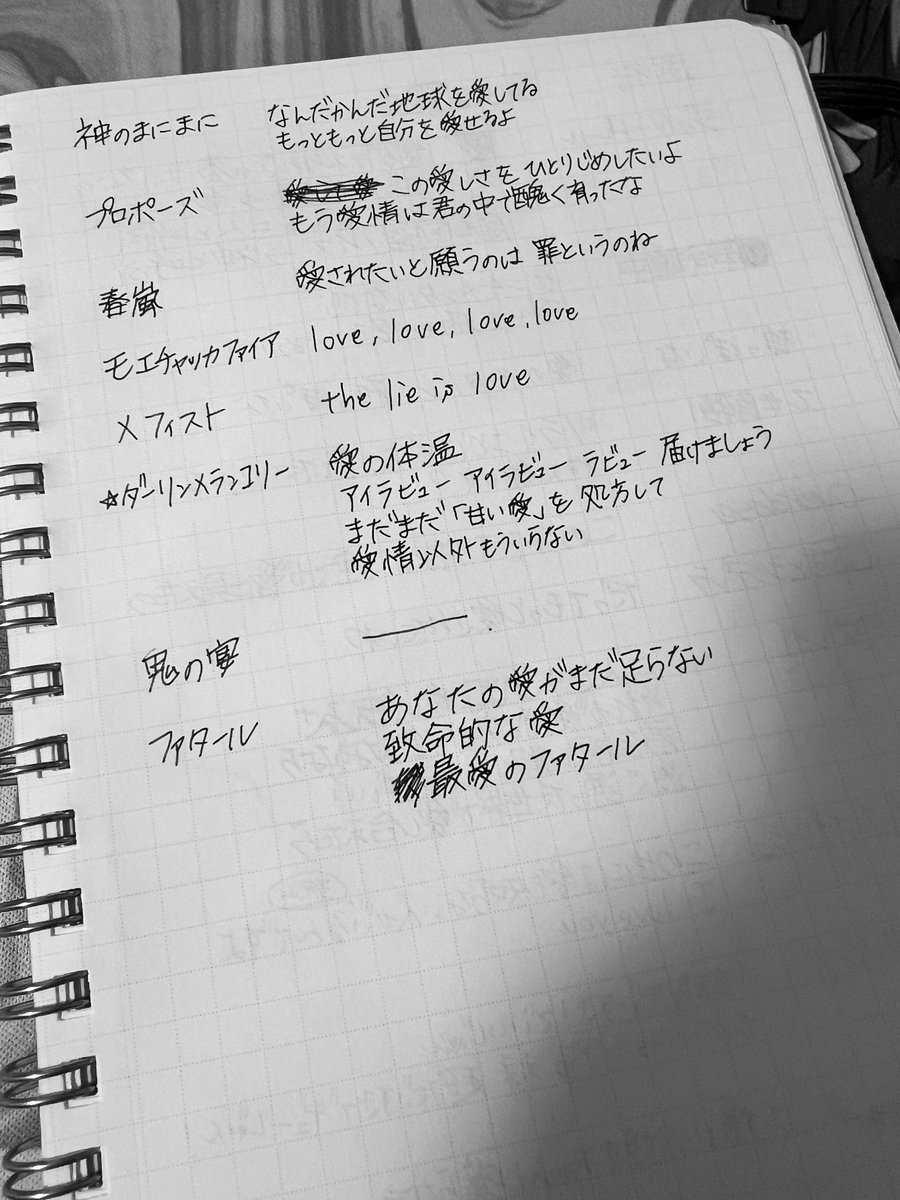 神のまにまに なんだかんだ地球を愛してる
もっともっと自分を愛せるよ
プロポーズ この愛しさをひとりじめしたいよ
もう愛情は君の中で醜く有ったな
春嵐 愛されたいと願うのは 罪というのね
モエチャッカファイア love, love, love, love
メフィスト the lie is love
☆ダーリンメランコリー 愛の体温
アイラビュー アイラビュー ラビュー 届けましょう
まだまだ「甘い愛」を 処方して
愛情以外もういらない
鬼の宴 ——
ファタール あなたの愛がまだ足らない
致命的な愛
最愛のファタール